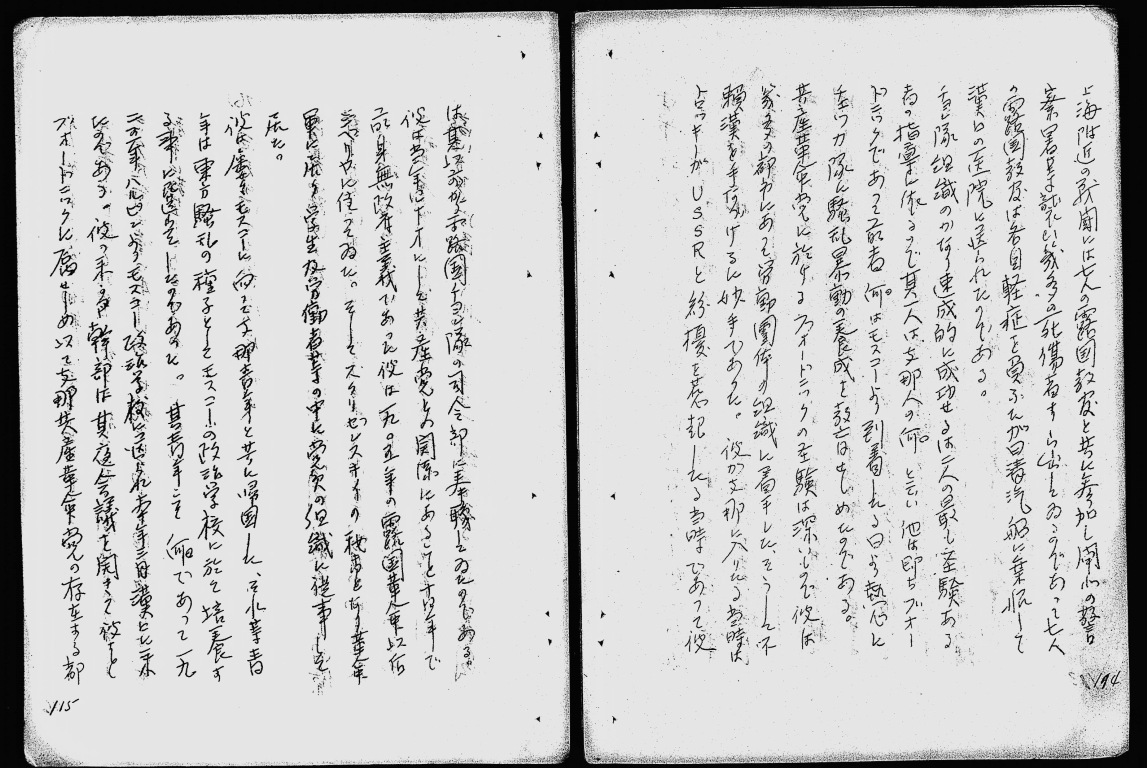 上海附近の新聞には七人の露国教官と共に参加し開北の警
察署を襲い幾多の死傷者すら出してゐるのであって七人
の露国教官は各自軽症を負ふたが日清汽船に乗船して
漢口の医院に送られたのである。
チョン隊組織のかなり速成的に成功せるは二人の最も経験ある
者の指揮に依るもので其一人は支那人の何。と云い他は即ちブオー
ドニックであって前者何。はモスコーより到着したる日より熱心に
チョツカ隊に騒乱暴動の養成を鼓吹せしめたのである。
共産革命党に於けるブオードニックの経験は深いもので彼は
幾多の都市にあって労働団体の組織に着手した、そうして不
頼漢を手なづけるに妙手であった。彼が支那に入りたる当時は
トロツキーがUSSRと紛擾を惹起したる当時であって彼
194
は其当時在露国チョン隊の司令部に奉職してゐたのである。
彼は今年は四十才にして共産党との関係にあること十四年で
前身無政府主義であった彼は一九〇五年の露国革命以后
アメリカに住ってゐた。そして
軍に居り学生及労働者等の中に党員の組織に従事して
居た。
彼は金をモスコーに向って支那青年と共に帰国した、それ等青
年は東方騒乱の種子としてモスコーの政治学校に於て培養す
る事に決定したのであった。其青年こそ何。であって一九
二四年八月にモスコー政治学校に送られ本年二月漢口に来
たのである。彼の来るや幹部は其夜会議を開きて彼を
ブオードニックに属せしめ以て支那共産革命党の存在する都
115